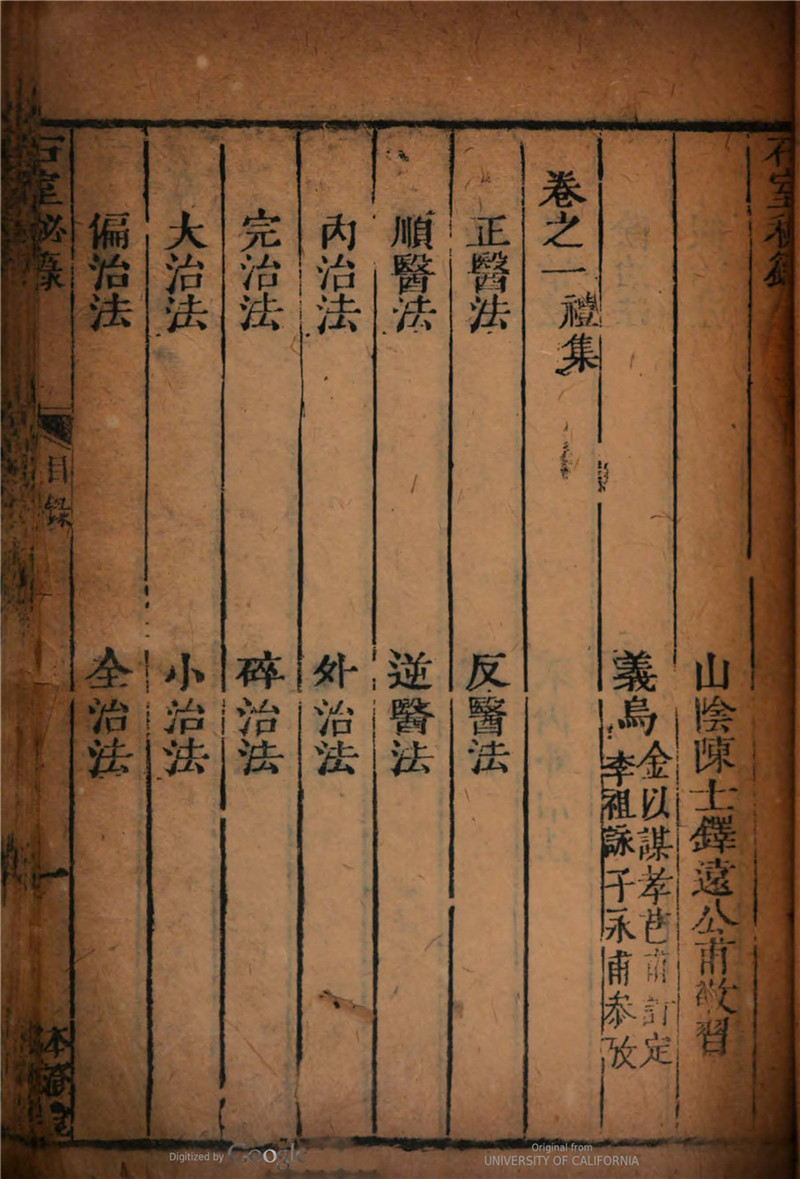 石室秘錄
山陰陳士鐸遠公甫敬習
義烏
金以謀孝芑甫訂定
李祖詠子永甫叅攷
卷之一禮集
正醫法 反醫法
順醫法 逆醫法
內治法 外治法
完治法 碎治法
大治法 小治法
偏治法 全治法
石室秘錄 目錄 一
Digitized by Google
Original from
UNIVERSITY OF CALIFORNIA